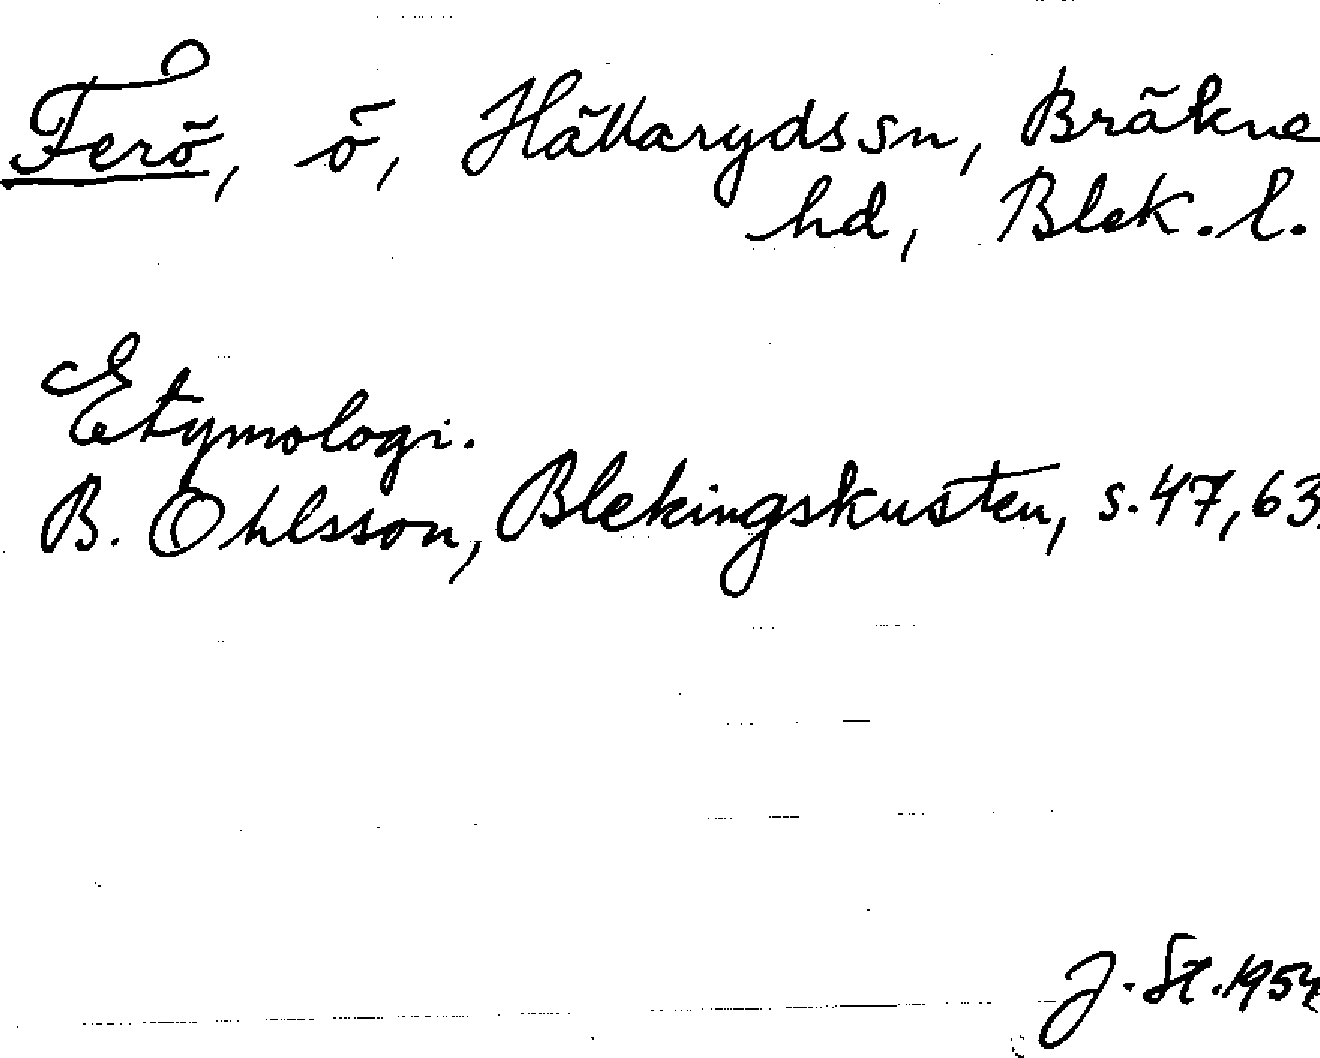 Ferö, ö, Hällaryds sn, Bräkne
hd, Blek. l.
Etymologi.
B. Ohlsson, Blekingskusten, s. 47, 63.
J. St. 1954